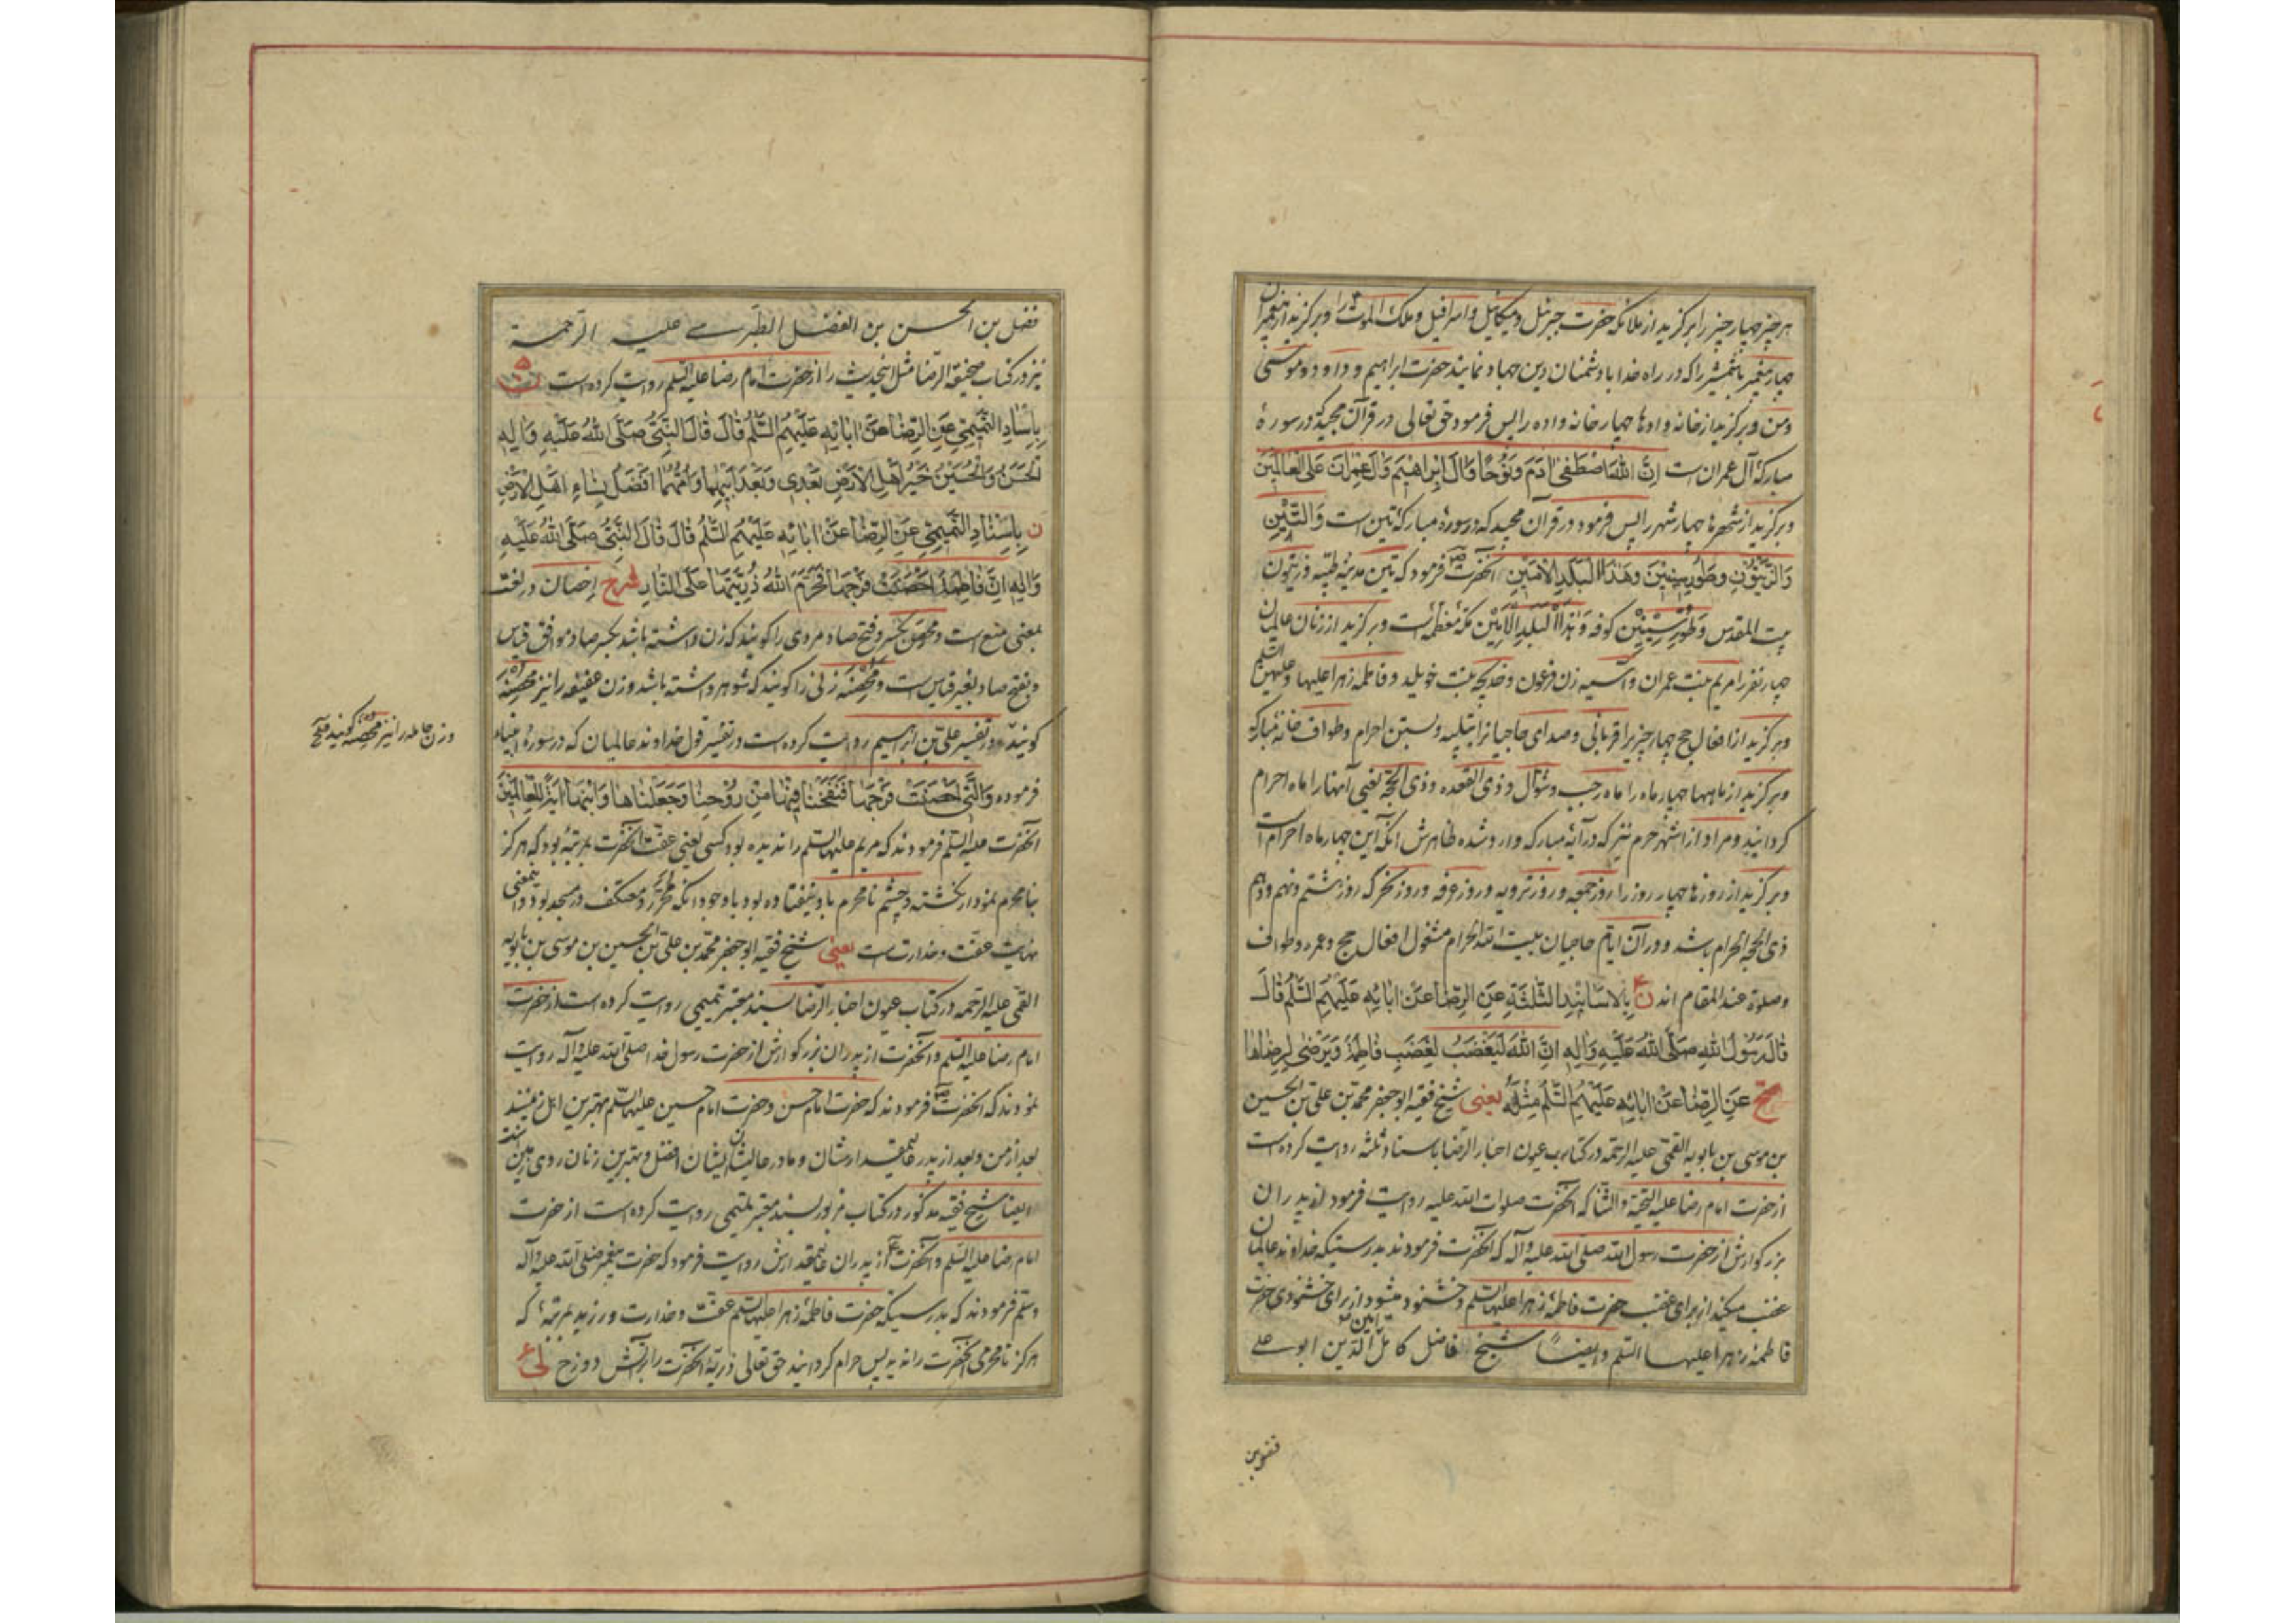 هر چیز چهار چیز را برگزید از ملائکه حضرت جبرئیل و میکائیل و اسرافیل و ملک الموت را و برگزید از پیغمبران
چهار پیغمبر با شمشیر را که در راه خدا با دشمنان دین جهاد نمایند حضرت ابراهیم و داود و موسی
و من و برگزید از خانه واده‌ها چهار خانه واده را پس فرمود حق تعالی در قرآن مجید که در سورهٔ
مبارکهٔ آل عمران است اِنَّ اللهَ اصْطَفىٰ ادَمَ وَنُوحًا وَالَ اِبْرٰاهٖيمَ وَالَ عِمْرانَ عَلَى الْعالَمينَ
و برگزید از شهرها چهار شهر را پس فرمود در قرآن مجید که در سورهٔ مبارکهٔ تین است وَالتّينِ
وَالزَّيْتُونِ وَطُورِ سِينِينَ وَهٰذَا الْبَلَدِ الْاَمينِ آنحضرت فرمود که تین مدینهٔ طیبه و زیتون
بیت المقدس وَطُورِ سِينِينَ کوفه وَهٰذَا الْبَلَدِ الْاَمِينِ مکهٔ معظمه است و برگزید از زنان عالمیان
چهار نفر را مریم بنت عمران و آسیه زن فرعون و خدیجه بنت خویلد و فاطمه زهرا علیها و علیهن السلم
و برگزید از افعال حج چهار چیز را قربانی و صدای حاجیانرا بتلبیه و بستن احرام و طواف خانهٔ مبارکه
و برگزید از ماهها چهار ماه را ماه رجب و شوال و ذی القعده و ذی الحجه یعنی آنها را ماه احرام
گردانید و مراد از اشهر حرم نیز که در آیهٔ مبارکه وارد شده ظاهرش آنکه این چهار ماه احرام است
و برگزید از روزها چهار روز را روز جمعه و روز ترویه و روز عرفه و روز نحر که روز هشتم و نهم و دهم
ذی الحجه الحرام باشد و در آن ایام حاجیان بیت الله الحرام مشغول افعال حج و عمره و طواف
و صلوة عند المقام اند ن بِالْاَسانيدِ الثَّلثَةِ عَنِ الرِّضا عَنْ ابائِهِ عَلَيْهِمُ السَّلمُ قالَ
قالَ رَسُولُ اللهِ صَلَّى اللهُ عَلَيْهِ وَالِهِ اِنَّ اللهَ لَيَغْضَبُ لِغَضَبِ فاطِمَةَ وَيَرْضى لِرِضاها
صح عَنِ الرِّضا عَنْ ابائِهِ عَلَيْهِمُ السَّلمُ مِثْلَهُ یعنی شیخ فقیه ابو جعفر محمد بن علی بن الحسین
بن موسی بن بابویه القمی علیه الرحمه در کتاب عیون اخبار الرضا باسناد ثلثه روایت کرده است
از حضرت امام رضا علیه التحیة والثنا که آنحضرت صلوات الله علیه روایت فرمود از پدران
بزرگوارش از حضرت رسول الله صلی الله علیه وآله که آنحضرت فرمودند بدرستیکه خداوند عالمیان
غضب میکند از برای غضب حضرت فاطمهٔ زهرا علیها السلم و خشنود میشود از برای خشنودی حضرت
فاطمهٔ زهرا علیها السلم وایضاً شیخ فاضل کامل امین الدین ابو علی
فضل بن
فضل بن الحسن بن الفضل الطبرسی علیه الرحمة
نیز در کتاب صحیفة الرضا مثل اینحدیث را از حضرت امام رضا علیه السلم روایت کرده است ن
بِاِسْنادِ التَّميمِيِّ عَنِ الرِّضا عَنْ ابائِهِ عَلَيْهِمُ السَّلمُ قالَ قالَ النَّبِيُّ صَلَّى اللهُ عَلَيْهِ وَالِهِ
الْحَسَنُ وَالْحُسَيْنُ خَيْرُ اَهْلِ الْاَرْضِ بَعْدي وَبَعْدَ اَبيهِما وَاُمُّهُما اَفْضَلُ نِساءِ اَهْلِ الْاَرْضِ
ن بِاِسْنادِ التَّميمِيِّ عَنِ الرِّضا عَنْ ابائِهِ عَلَيْهِمُ السَّلمُ قالَ قالَ النَّبِيُّ صَلَّى اللهُ عَلَيْهِ
وَالِهِ اِنَّ فاطِمَةَ اَحْصَنَتْ فَرْجَها فَحَرَّمَ اللهُ ذُرِّيَّتَها عَلَى النّارِ شرح اِحصان در لغت
بمعنی منع است و محصن بکسر و فتح صاد مردی را گویند که زن داشته باشد بکسر صاد موافق قیاس
و بفتح صاد بغیر قیاس است و محصنه زنی را گویند که شوهر داشته باشد و زن عفیفه را نیز محصنه
گویند و در تفسیر علی بن ابراهیم روایت کرده است در تفسیر قول خداوند عالمیان که در سورهٔ انبیاء
وزن حامله را نیز محصنه گویند صح
فرموده وَالَّتي اَحْصَنَتْ فَرْجَها فَنَفَخْنا فيها مِنْ رُوحِنا وَجَعَلْناها وَابْنَها ايَةً لِلْعالَمينَ
آنحضرت علیه السلم فرمودند که مریم علیها السلم را ندیده بود کسی یعنی عفت آنحضرت بمرتبهٔ بود که هرگز
بنا محرم نمودار نگشته و چشم نامحرم باو نیفتاده بود با وجود آنکه محرر و معتکف در مسجد بود و اینمعنی
نهایت عفت و خدارت است یعنی شیخ فقیه ابو جعفر محمد بن علی بن الحسین بن موسی بن بابویه
القمی علیه الرحمه در کتاب عیون اخبار الرضا بسند معتبر تمیمی روایت کرده است از حضرت
امام رضا علیه السلم و آنحضرت از پدران بزرگوارش از حضرت رسول خدا صلی الله علیه وآله روایت
نمودند که آنحضرت فرمودند که حضرت امام حسن و حضرت امام حسین علیهما السلم بهترین اهل زمینند
بعد از من و بعد از پدر عالیمقدارشان و مادر عالیشان ایشان افضل و بهترین زنان روی زمین است
ایضا شیخ فقیه مذکور در کتاب مزبور بسند معتبر تمیمی روایت کرده است از حضرت
امام رضا علیه السلم و آنحضرت از پدران عالیمقدارش روایت فرمود که حضرت پیغمبر صلی الله علیه وآله
وسلم فرمودند که بدرستیکه حضرت فاطمهٔ زهرا علیها السلم عفت و خدارت ورزید بمرتبهٔ که
هرگز نامحرمی آنحضرت را ندید پس حرام گردانید حق تعالی ذریهٔ آنحضرت را بر آتش دوزخ لی